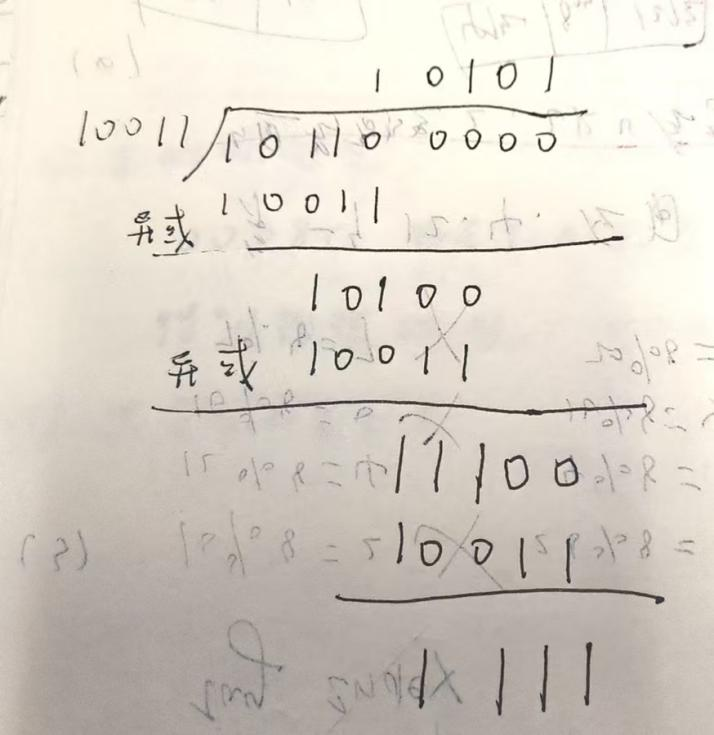 1 0101
10011 10110 0000
异或 10011
10100
异或 10011
11100
10011
1111